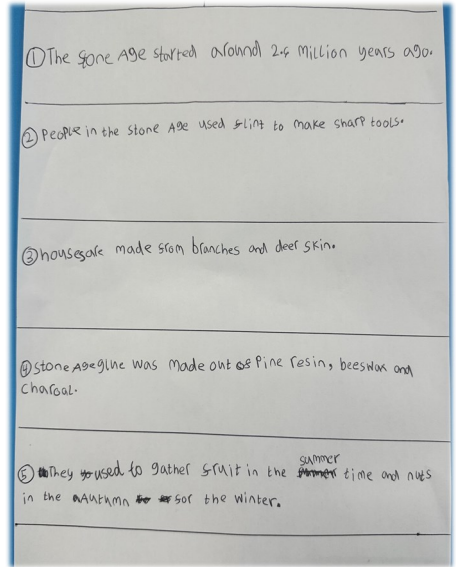 ① The Stone Age started around 2.4 million years ago.
② People in the Stone Age used flint to make sharp tools.
③ houses are made from branches and deer skin.
④ Stone Age glue was made out of Pine resin, beeswax and
Charcoal.
⑤ They used to gather fruit in the summer time and nuts
in the Autumn for the winter.